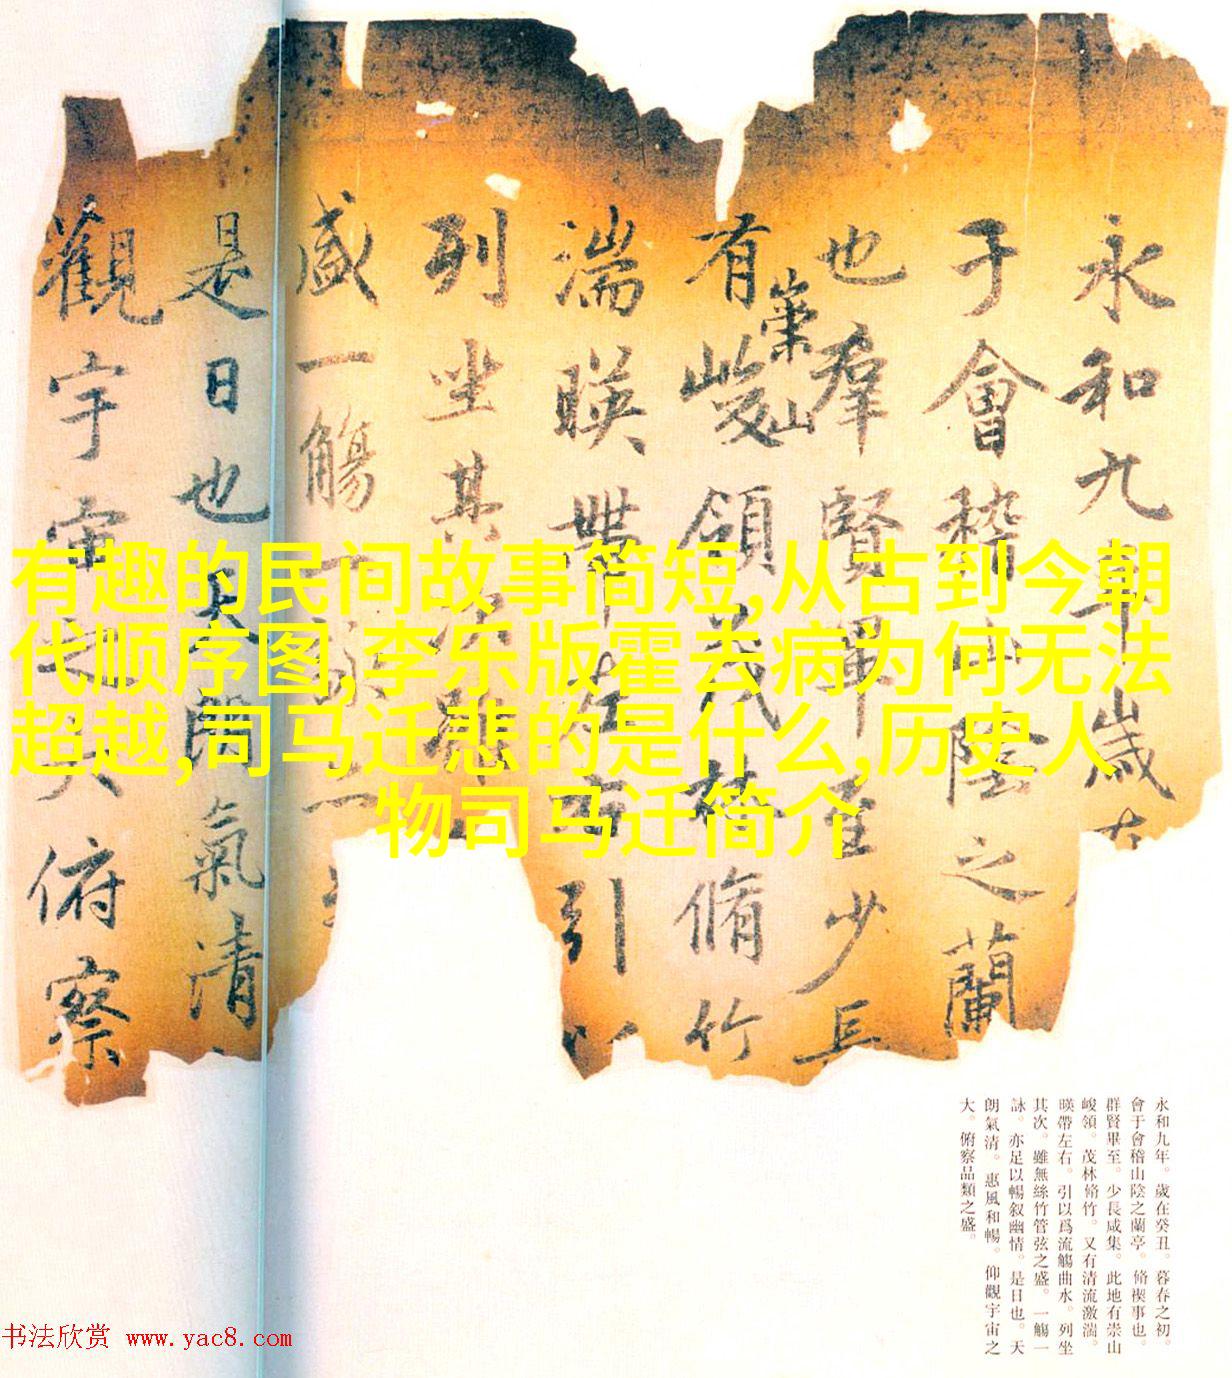 永和九年歲在
于會稽山陰之蘭
也羣賢畢至少長
有崇山峻領茂林脩竹
湍暎帶左右引以
列坐其次雖
盛一觴一詠亦
是日也天朗氣清
觀宇宙之大俯察
有趣的民间故事简短,从古到今朝
代顺序图,李乐版霍去病为何无法
超越,司马迁悲的是什么,历史人
物司马迁简介
永和九年。歲在癸丑。暮春之初。
會于會稽山陰之蘭亭。脩禊事也。
群賢畢至。少長咸集。此地有崇山
峻領。茂林脩竹。又有清流激湍。
暎帶左右。引以爲流觴曲水。列坐
其次。雖無絲竹管弦之盛。一觴一
詠。亦足以暢叙幽情。是日也。天
朗氣清。惠風和暢。仰觀宇宙之
大。俯察品類之盛。
书法欣赏 www.yac8.com